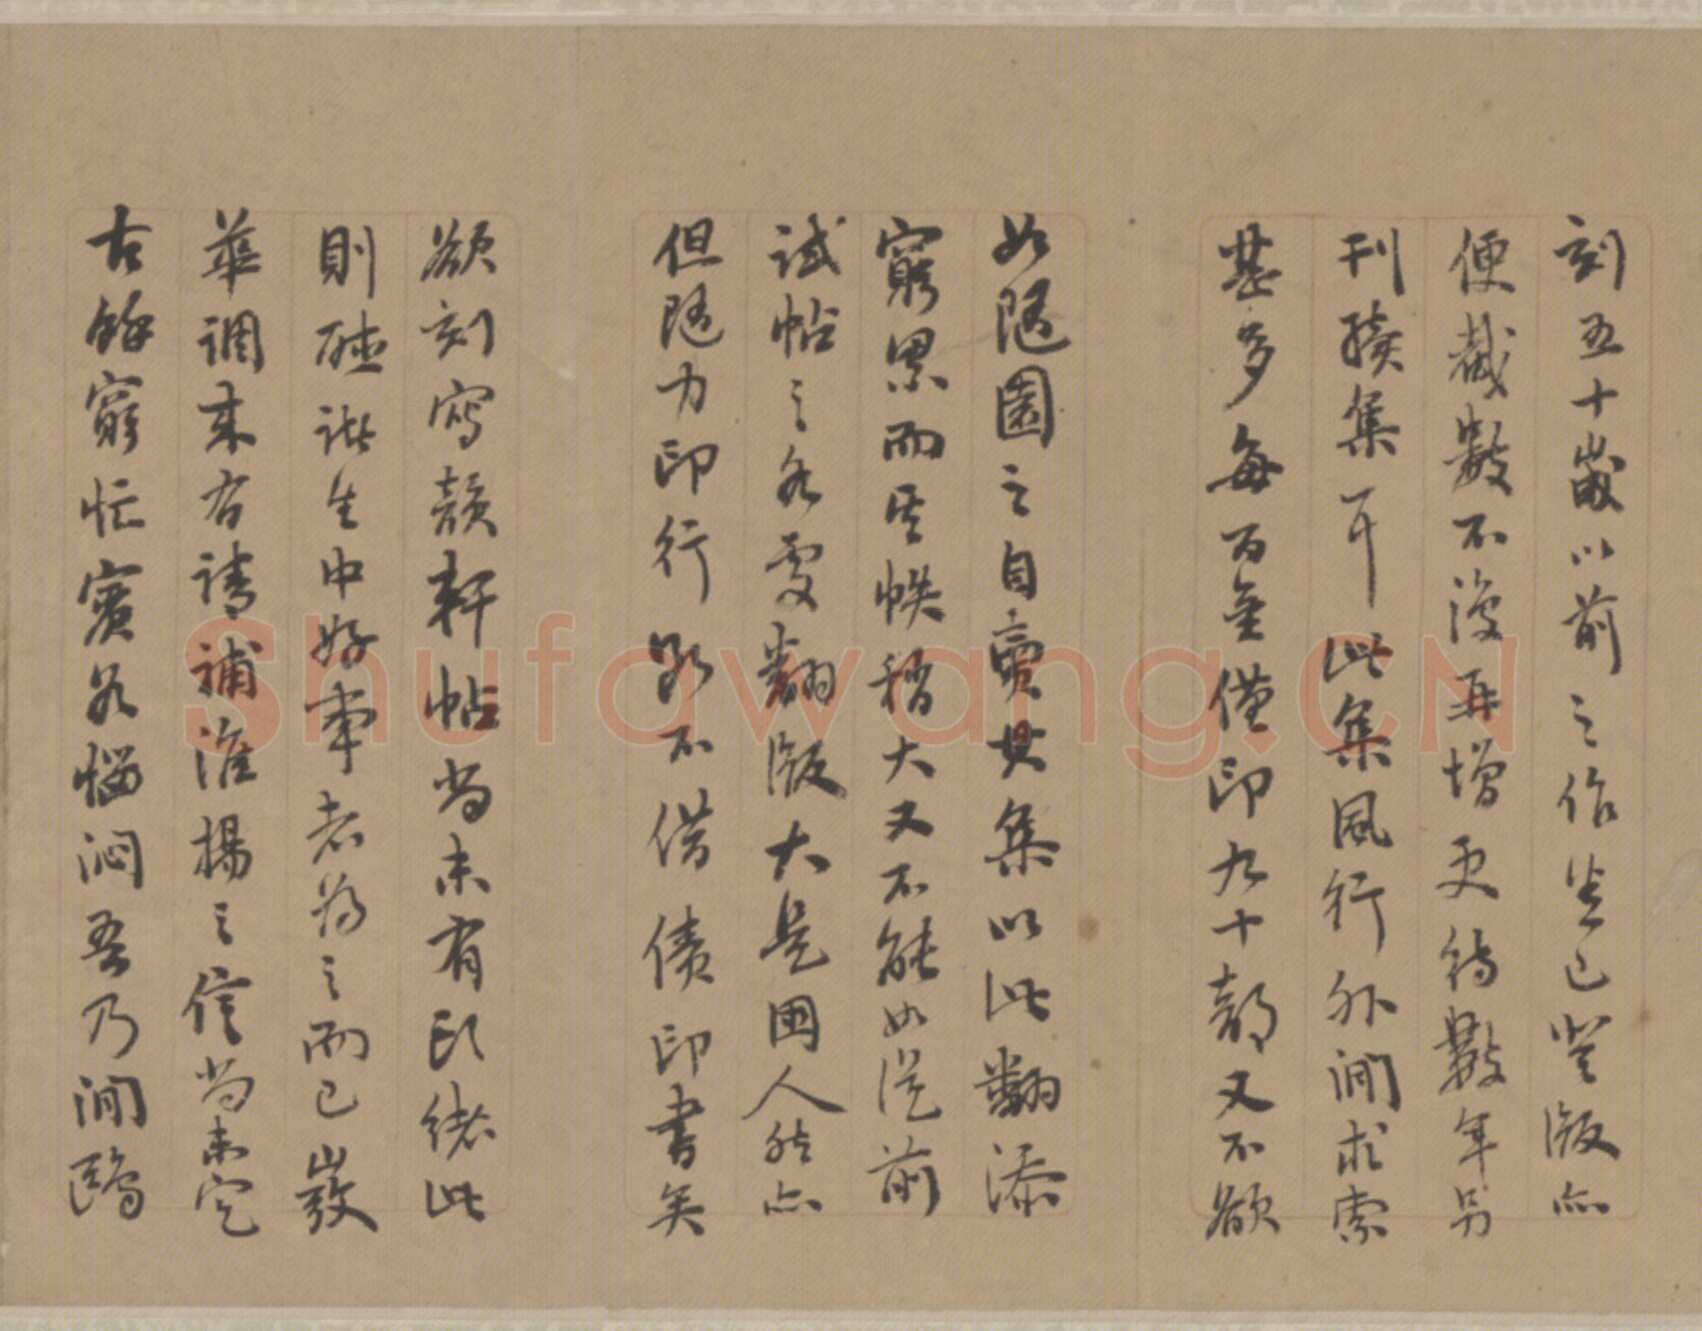 刻五十歲以前之作坐已災版亦
便截數不復再增更待數年另
刊續集耳此集風行外間求索
甚多每百金僅印九十部又不欲
如隨園之自賣其集以此翻添
窮累而其帙稍大又不能如從前
試帖之各處翻版大是困人然亦
但隨力印行斷不借債印書矣
欲刻寫韻軒帖尚未有頭緒此
則碰諸生中好事者為之而已嶽
華調來者請補淮揚之信尚未定
古餘窮忙賓谷惱悶吾乃閒鷗
Shufawang.CN